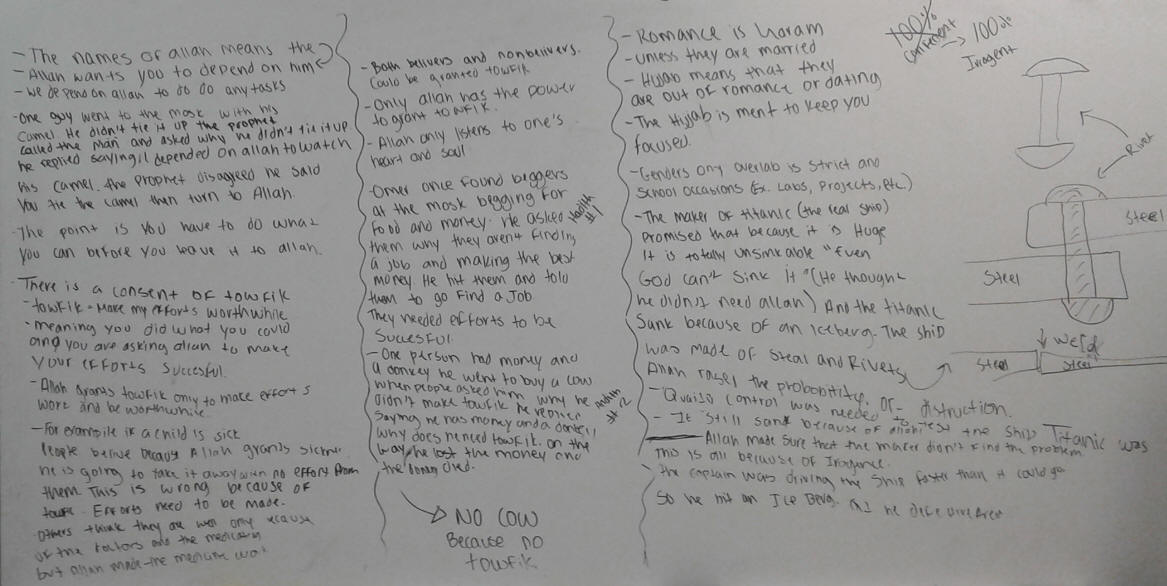 - The names of allah means the
- Allah wants you to depend on him
- we depend on allah to do do any tasks
- One guy went to the mosk with his
camel. He didn't tie it up the prophet
called the man and asked why he didn't tie it up
he replied saying I depended on allah to watch
his camel. the prophet disagreed he said
You tie the camel then turn to Allah.
- The point is you have to do what
you can before you leave it to allah.
- There is a consent of towfik
- towfik - Make my efforts worthwhile
- meaning you did what you could
and you are asking allah to make
your efforts succesful.
- Allah grants towfik only to make efforts
work and be worthwhile.
- For example if a child is sick
People belive because Allah grants sickness
he is going to take it away with no effort from
them This is wrong because of
towfik. Efforts need to be made.
- Others think they are well only because
of the doctors and the medicain
but allah made the medicine
- Both belivers and nonbelivers.
could be granted towfik
- Only allah has the power
to grant towfik.
- Allah only listens to one's
heart and soul
- Omer once found beggers
at the mosk begging for
food and money. He asked
them why they arent finding
a job and making the best
money. He hit them and told
them to go find a Job
They needed efforts to be
Succesful.
Hadith
#1
- One person had money and
a donkey he went to buy a cow
when people asked him why he
didn't make towfik he replied
saying he has money and a donkey
why does he need towfik. on the
way he lost the money and
the donkey died.
Hadith
#2
NO COW
Because no
towfik
- Romance is haram
- unless they are married
- Hijab means that they
are out of romance or dating
- The Hijab is ment to keep you
focused.
- Genders ony overlab is strict and
school occasions (Ex. Labs, projects, etc.)
- The maker of titanic (the real ship)
promised that because it is Huge
It is totally unsinkable "Even
God can't sink it" (He thought
he didn't need allah) And the titanic
Sank because of an Iceberg. The ship
was made of Steal and Rivets
Allah rased the probobitity. of distruction.
- Quaiso control was needed
- It still sank because of the ship Titanic was
- Allah made sure that the maker didn't find the problem
This is all because of Irogance.
- the captain was driving the ship faster than it could go
So he hit an Ice Berg.
100%
Confienent
100%
Irogent
Rivet
Steel
Steel
weld
Steel
Steel